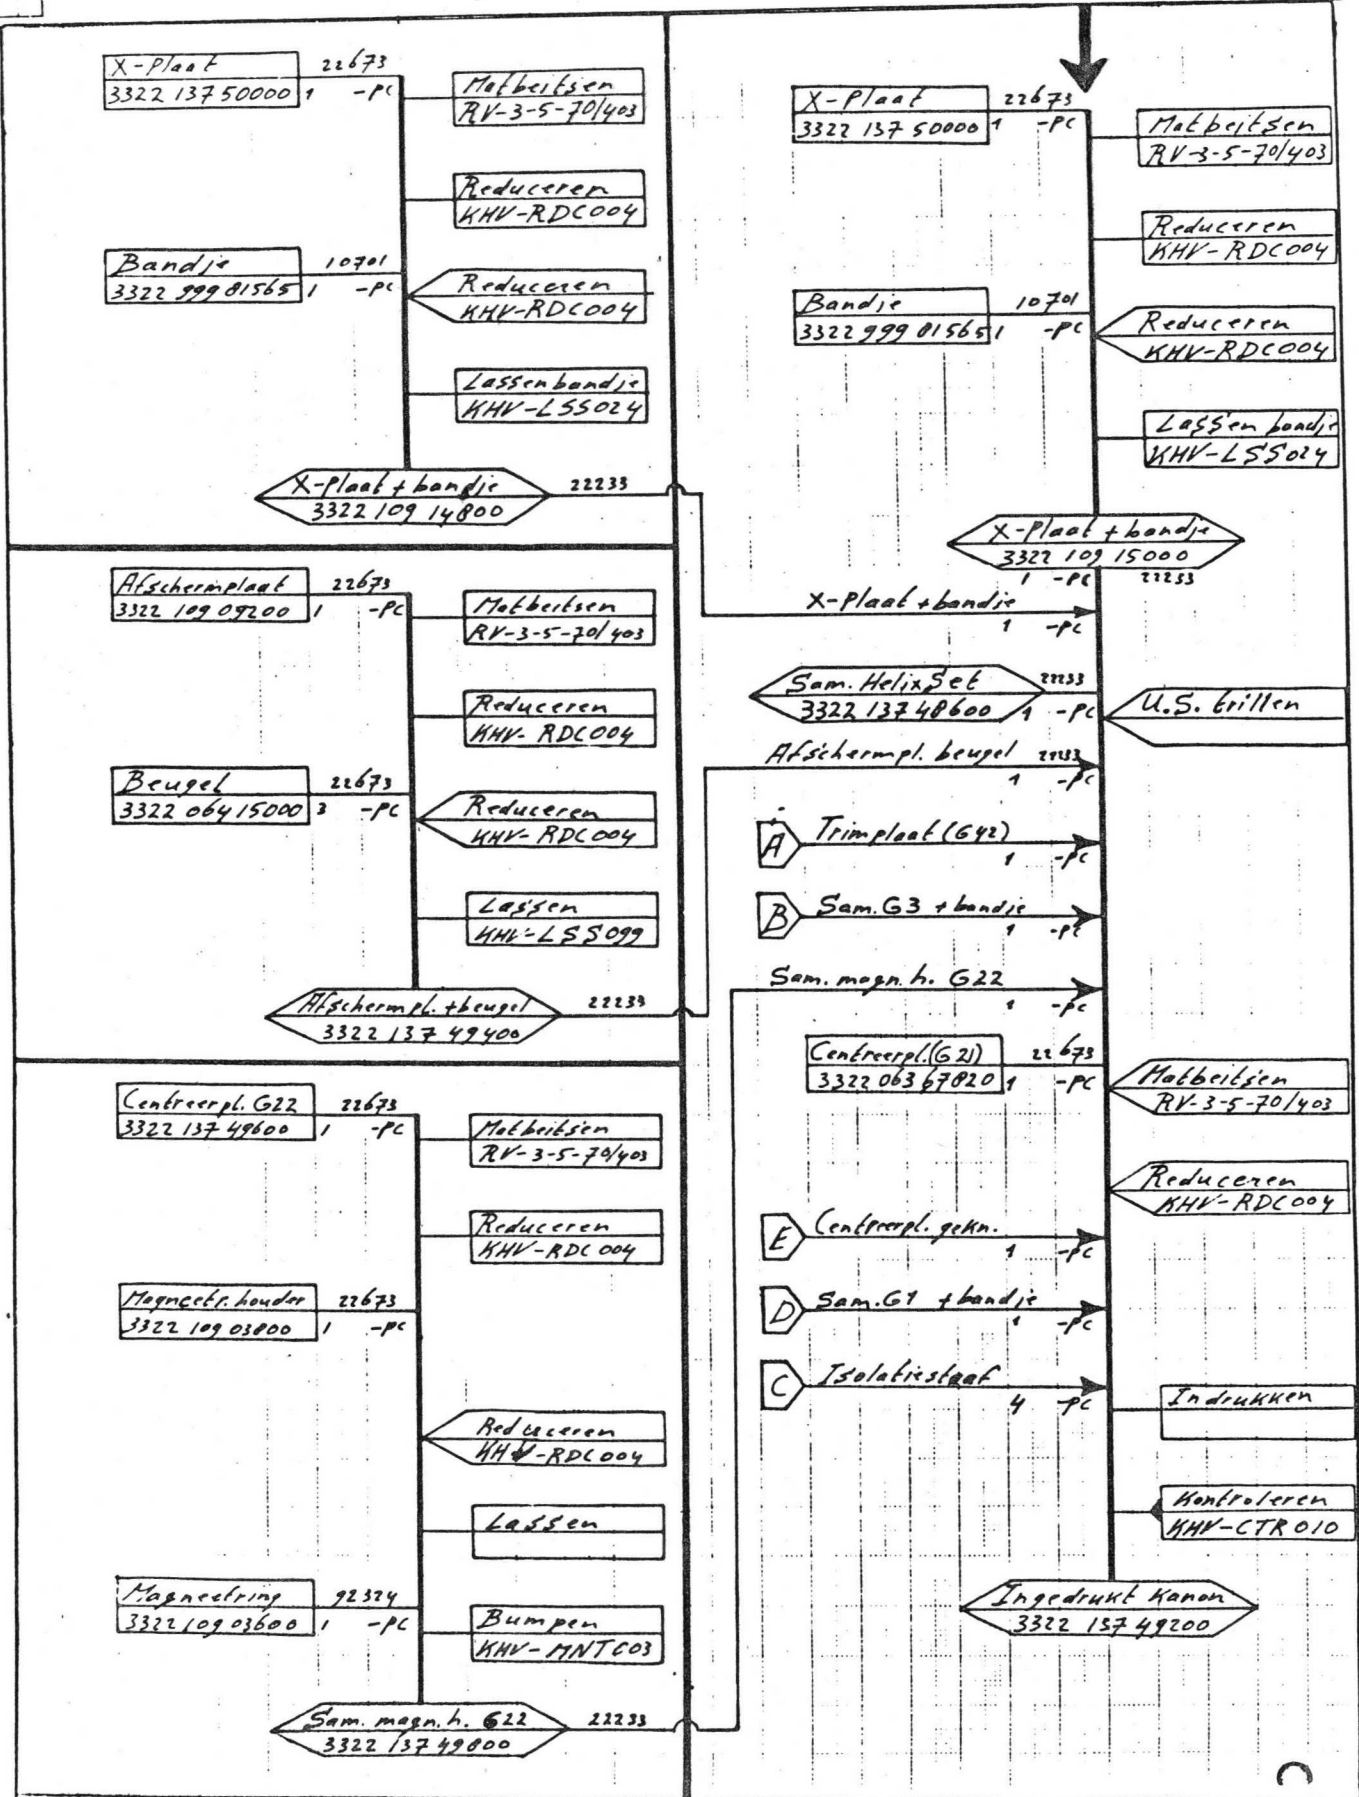 X-Plaat 22673
3322 137 50000 1 -PC
Matbeitsen
RV-3-5-70/403
Reduceren
KHV-RDC004
Bandje 10701
3322 999 81565 1 -PC
Reduceren
KHV-RDC004
Lassen bandje
KHV-LSS024
X-Plaat + bandje 22233
3322 109 14800
Afschermplaat 22673
3322 109 09200 1 -PC
Matbeitsen
RV-3-5-70/403
Reduceren
KHV-RDC004
Beugel 22673
3322 064 15000 3 -PC
Reduceren
KHV-RDC004
Lassen
KHV-LSS099
Afschermpl. + beugel 22233
3322 137 49400
Centreerpl. G22 22673
3322 137 49600 1 -PC
Matbeitsen
RV-3-5-70/403
Reduceren
KHV-RDC004
Magneetr. houder 22673
3322 109 03800 1 -PC
Reduceren
KHV-RDC004
Lassen
Magneetring 92324
3322 109 03600 1 -PC
Bumpen
KHV-MNTC03
Sam. magn. h. G22 22233
3322 137 49800
X-Plaat 22673
3322 137 50000 1 -PC
Matbeitsen
RV-3-5-70/403
Reduceren
KHV-RDC004
Bandje 10701
3322 999 81565 1 -PC
Reduceren
KHV-RDC004
Lassen bandje
KHV-LSS024
X-Plaat + bandje
3322 109 15000
1 -PC 22233
X-Plaat + bandje
1 -PC
Sam. Helix Set 22233
3322 137 48600 1 -PC
U.S. trillen
Afschermpl. beugel 22233
1 -PC
A Trimplaat (G42)
1 -PC
B Sam. G3 + bandje
1 -PC
Sam. magn. h. G22
1 -PC
Centreerpl. (G21) 22673
3322 063 67820 1 -PC
Matbeitsen
RV-3-5-70/403
Reduceren
KHV-RDC004
E Centreerpl. gekn.
1 -PC
D Sam. G1 + bandje
1 -PC
C Isolatiestaaf
4 -PC
Indrukken
Kontroleren
KHV-CTR010
Ingedrukt Kanon
3322 137 49200